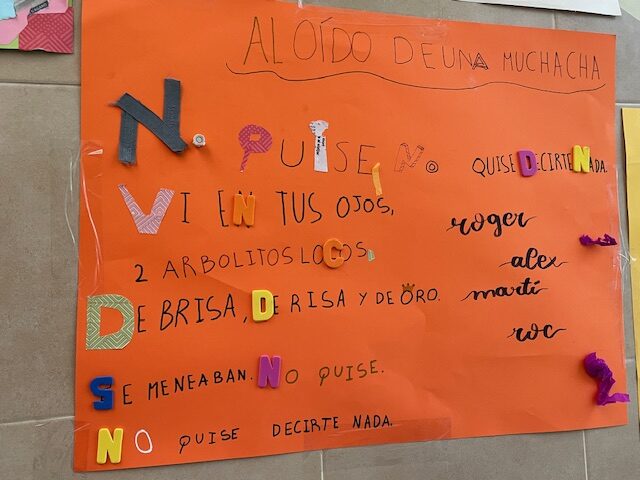 AL OÍDO DE UNA MUCHACHA
No QUISE. No QUISE DECIRTE NADA.
VI EN TUS OJOS,
2 ARBOLITOS LOCOS,
DE BRISA, DE RISA Y DE ORO.
SE MENEABAN. NO QUISE.
NO QUISE DECIRTE NADA.
roger
alex
martí
roc